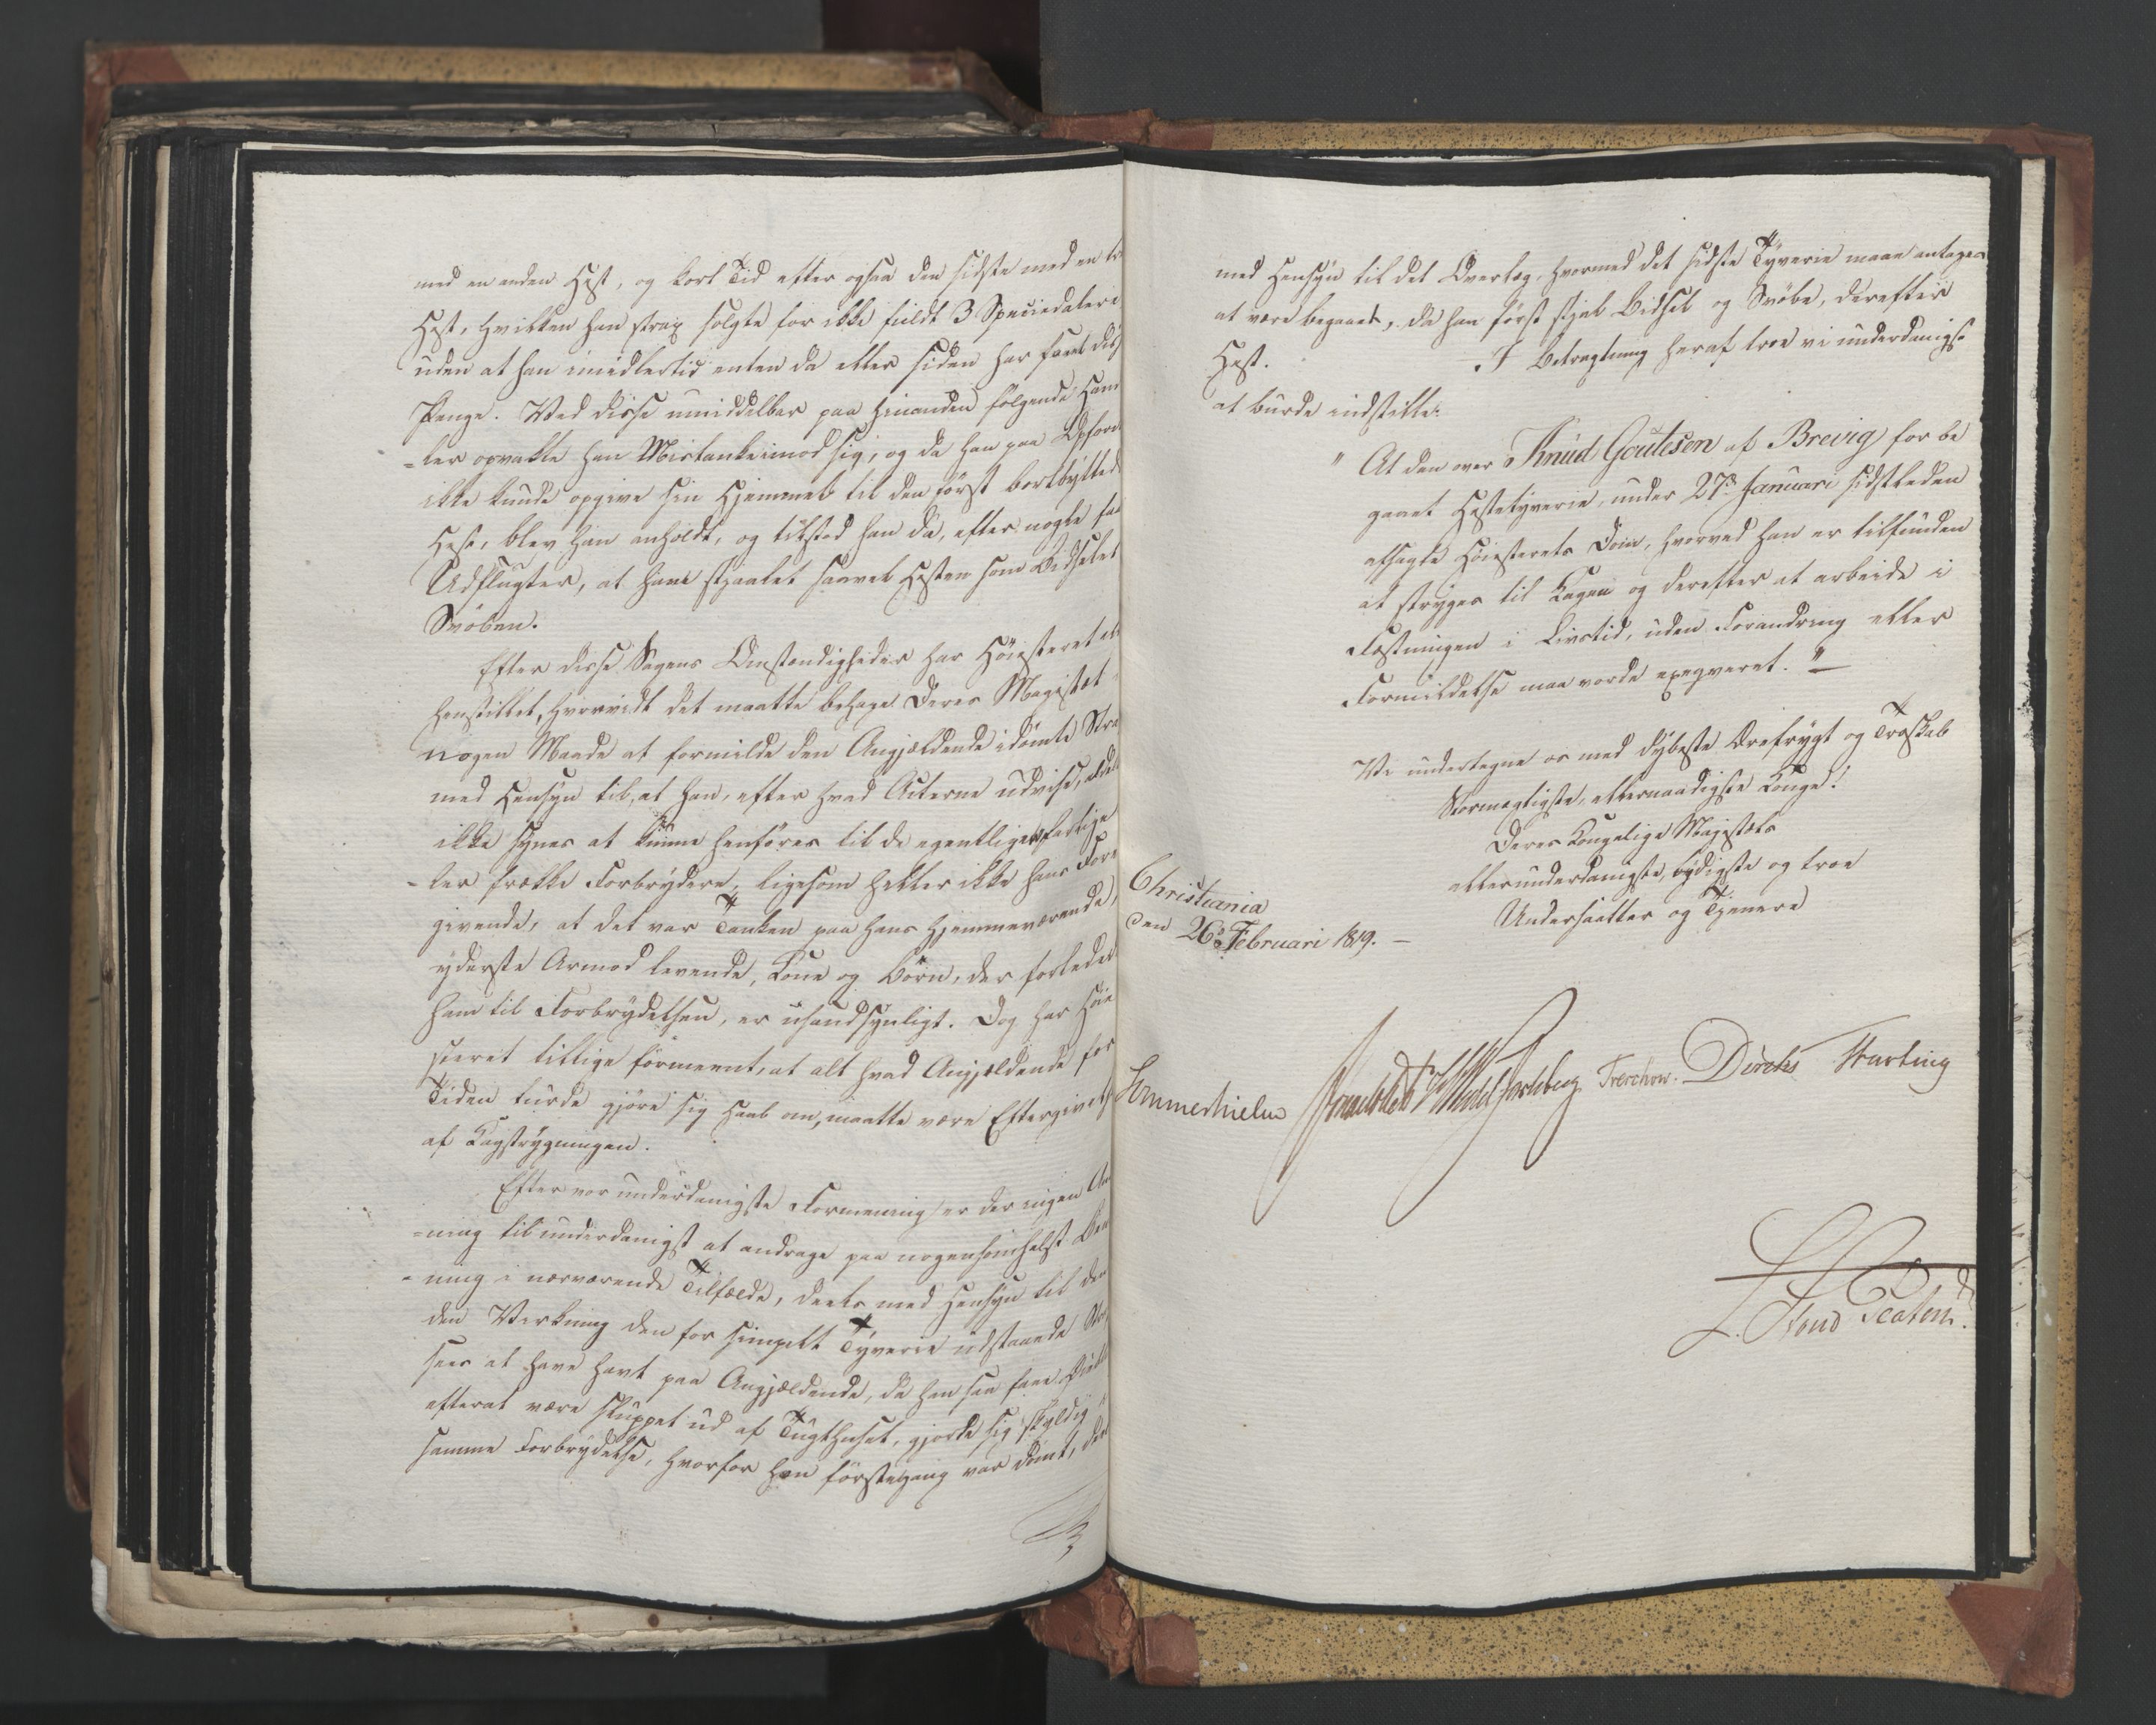 med en anden Hest, og kort Tid efter ogsaa den sidste med en
Hest, hvilken han strax solgte for ikke fuldt 3 Speciedaler
uden at han imidlertid enten da eller siden har faaet disse
Penge. Ved disse umiddelbar paa hinanden følgende Hand
=ler opvakte han Mistanke imod sig, og da han paa
ikke kunde opgive sin Hjemmel til den først bortbyttede
Hest, blev han anholdt, og tilstod han da, efter nogle
Udflugter, at have stjaalet saavel Hesten som Bidselet
Svøben.
Efter disse Sagens Omstændigheder har Høiesteret
henstillet, hvorvidt det maatte behage Deres Majestæt
nogen Maade at formilde den Angjældende idømte Stra
med Hensyn til, at han, efter hvad Acterne udvise,
ikke synes at kunne henføres til de egentlige farlige
=ler frække Forbrydere, ligesom heller ikke hans Fore
givende, at det var Tanken paa hans hjemmeværende,
yderste Armod levende, Kone og Børn, der forledede
ham til Forbrydelsen, er usandsynligt. Dog har Høie
steret tillige formeent, at alt hvad Angjældende for
Tiden turde gjøre sig Haab om, maatte være Eftergivelse
af Kagstrygningen.
Efter vor underdanigste Formening er der ingen An
=ning til underdanigst at andrage paa nogensomhelst Ben
=ning i nærværende Tilfælde, deels med Hensyn til den
den Virkning den for simpelt Tyverie udstaaede
sees at have havt paa Angjældende, da han saa faae
efterat være sluppet ud af Tugthuset, gjorde sig skyldig i
samme Forbrydelse, hvorfor han førstegang var dømt,
med Hensyn til det Overlæg, hvormed det sidste Tyverie maae antages
at være begaaet, da han først stjal Bidsel og Svøbe, derefter
Hest. I Betragtning heraf troe vi underdanigst
at burde indstille:
" At den over Knud Goutesen af Brevig for be
gaaet Hestetyverie, under 27de Januari sidstleden
afsagte Høiesterets Dom, hvorved han er tilfunden
at stryges til Kagen og derefter at arbeide i
Fæstningen i Livstid, uden Forandring eller
Formildelse maa vorde exeqveret. "
Vi undertegne os med dybeste Ærefrygt og Troskab
Stormægtigste, allernaadigste Konge!
Deres Kongelige Majestæts
allerunderdanigste, lydigste og troe
Undersaatter og Tjenere
Christiania
den 26de Februari 1819.
Sommerhielm Treschow. Diriks Fasting